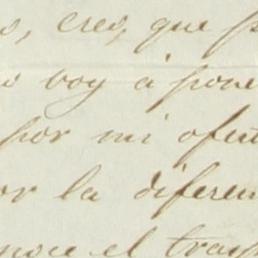 s, cres, que p
o voy á pone
por mi ofert
or la diferen
noce el trasp